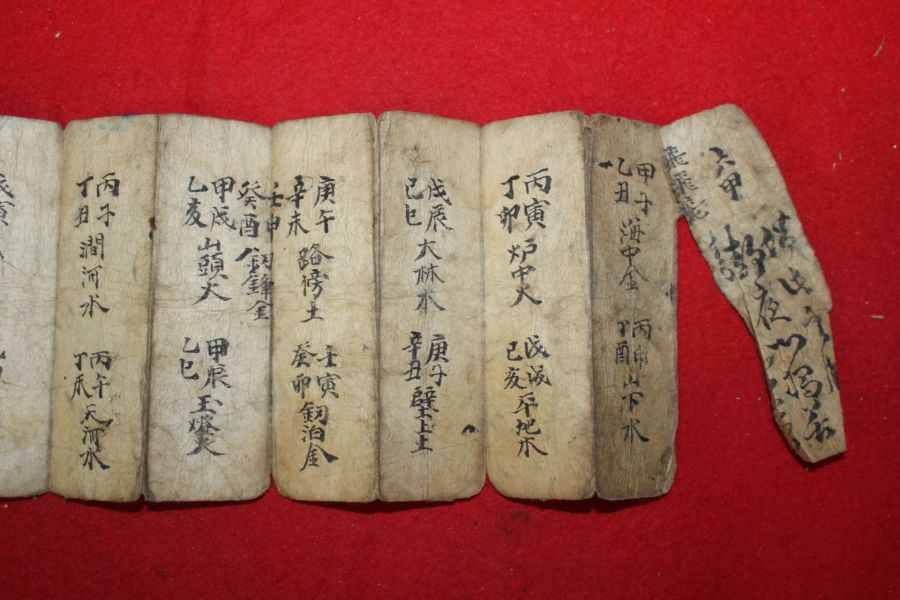 六甲
甲子
乙丑
海中金
丙申
丁酉
山下水
丙寅
丁卯
炉中火
戊戌
己亥
平地木
戊辰
己巳
大林木
庚子
辛丑
壁上土
庚午
辛未
路傍土
壬寅
癸卯
釖泊金
壬申
癸酉
釖鋒金
甲戌
乙亥
山頭火
甲辰
乙巳
玉燈火
丙子
丁丑
澗河水
丙午
丁未
天河水
戊寅